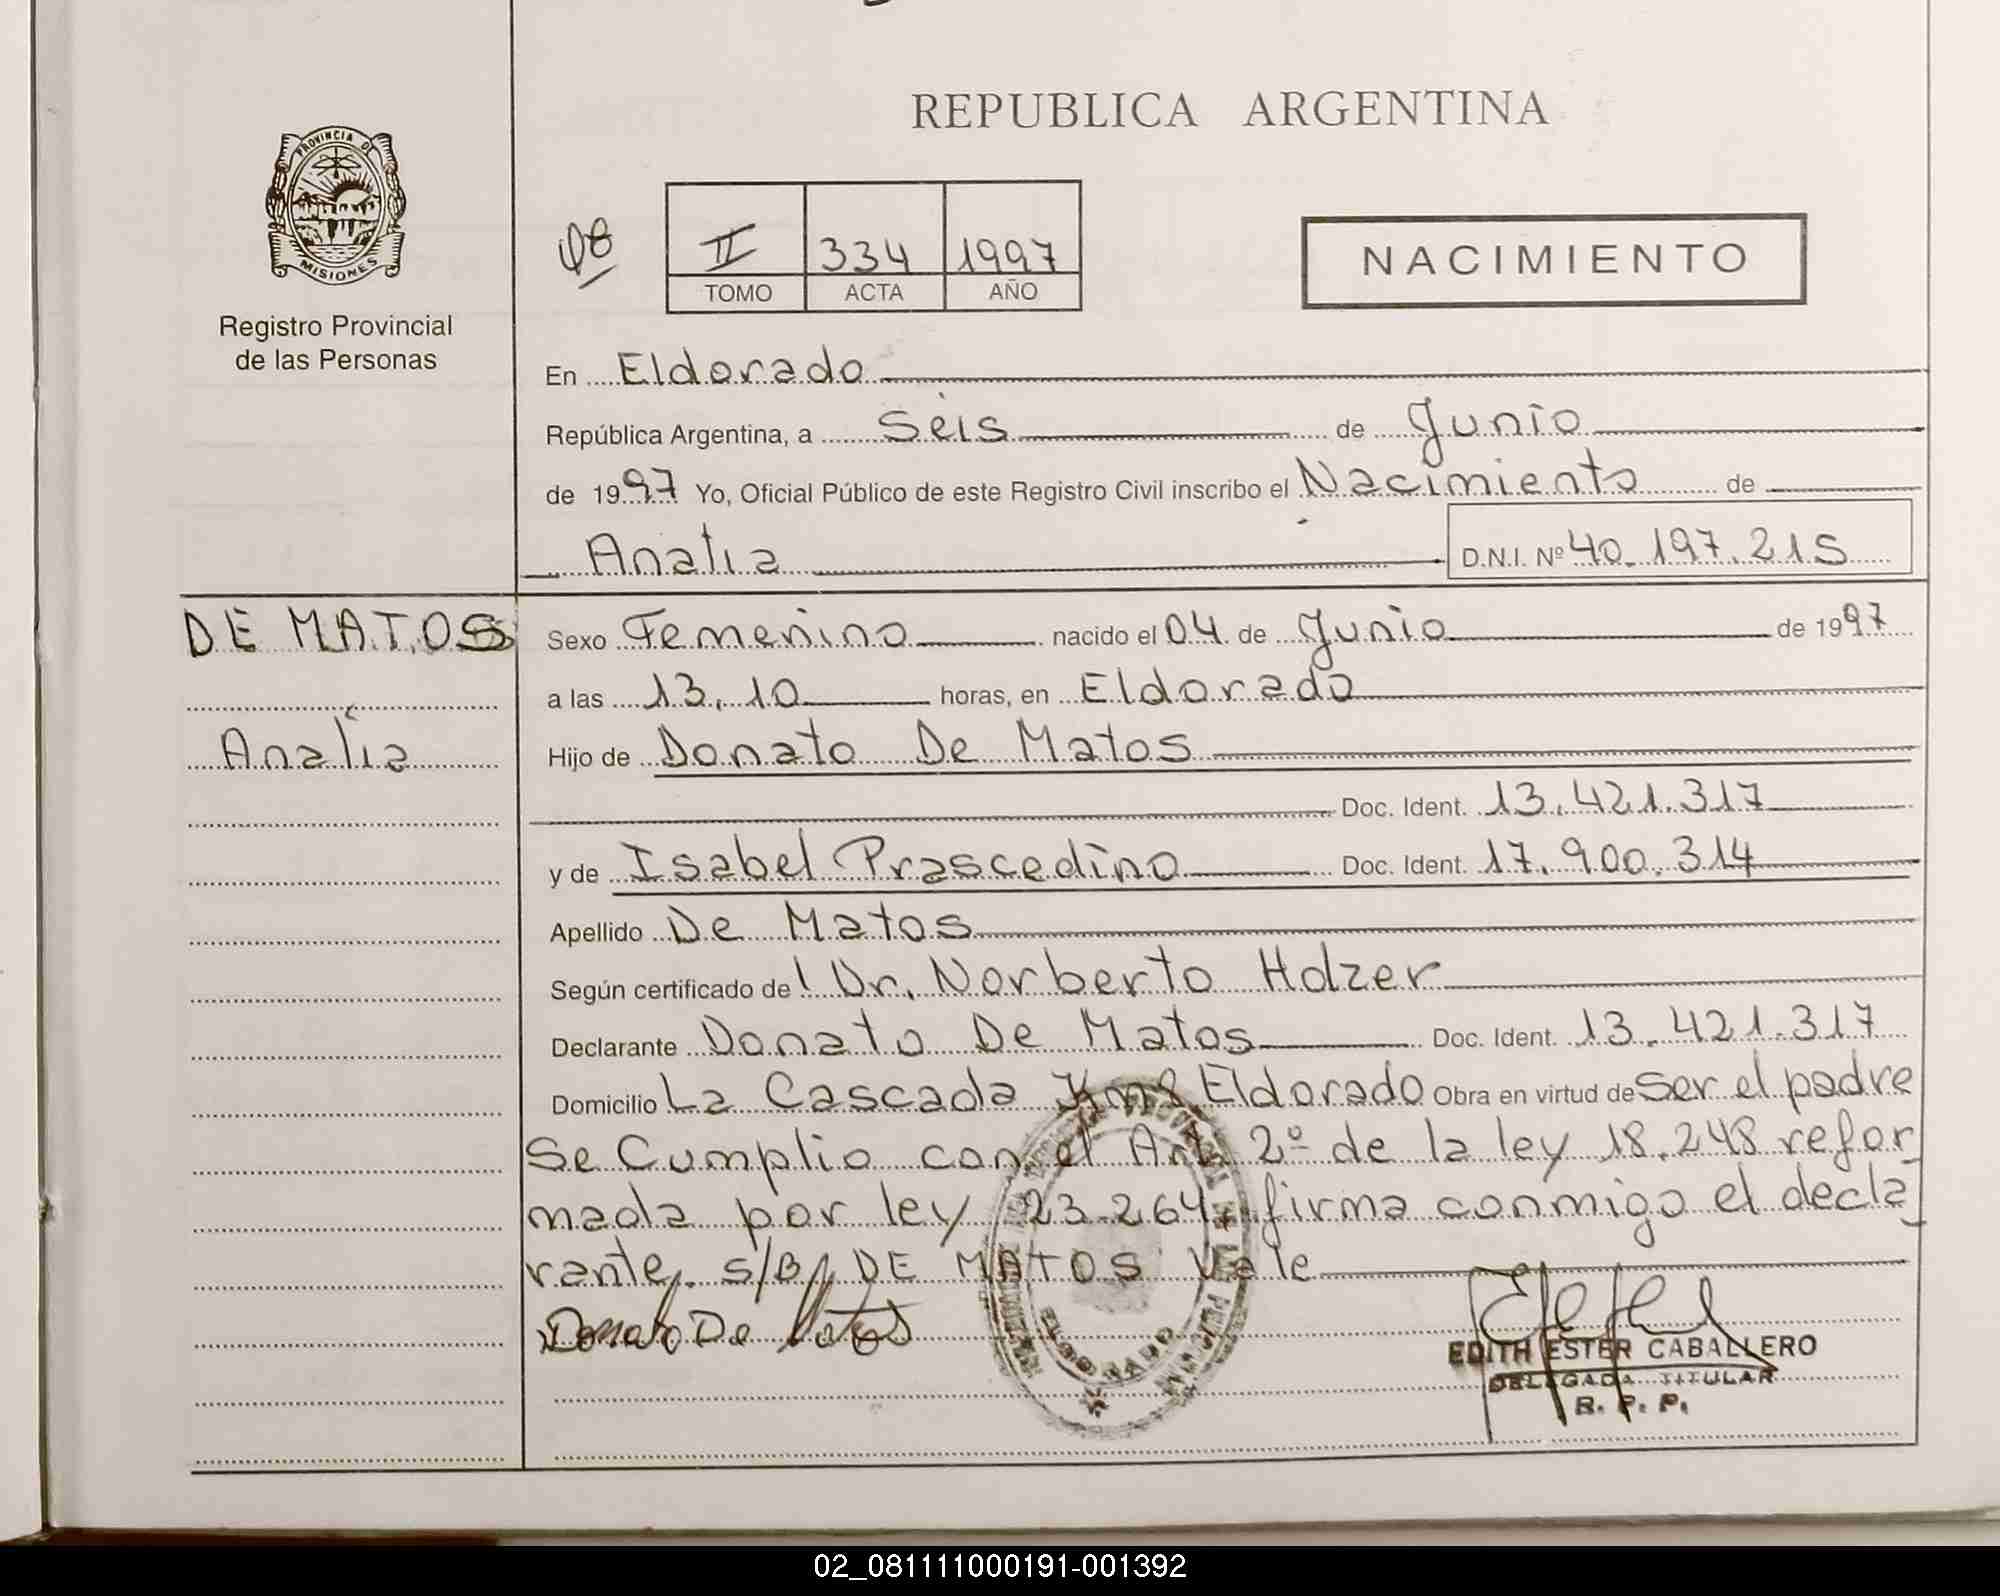 REPUBLICA ARGENTINA
PROVINCIA DE
MISIONES
Registro Provincial
de las Personas
II 334 1997
TOMO ACTA AÑO
NACIMIENTO
En Eldorado
República Argentina, a Seis de Junio
de 1997 Yo, Oficial Público de este Registro Civil inscribo el Nacimiento de
Analía D.N.I. Nº 40.197.215
DE MATOS
Analía
Sexo Femenino nacido el 04 de Junio de 1997
a las 13,10 horas, en Eldorado
Hijo de Donato De Matos
Doc. Ident. 13.421.317
y de Isabel Prascedino Doc. Ident. 17.900.314
Apellido De Matos
Según certificado de l Dr. Norberto Holzer
Declarante Donato De Matos Doc. Ident. 13.421.317
Domicilio La Cascada Eldorado Obra en virtud de Ser el padre
Se Cumplio con el Art. 2º de la ley 18.248 refor
mada por ley 23.264, firma conmigo el decla
rante, s/B/ DE MATOS Vale
Donato De Matos
ELDORADO
EDITH ESTER CABALLERO
DELEGADA TITULAR
R. P. P.
02_081111000191-001392